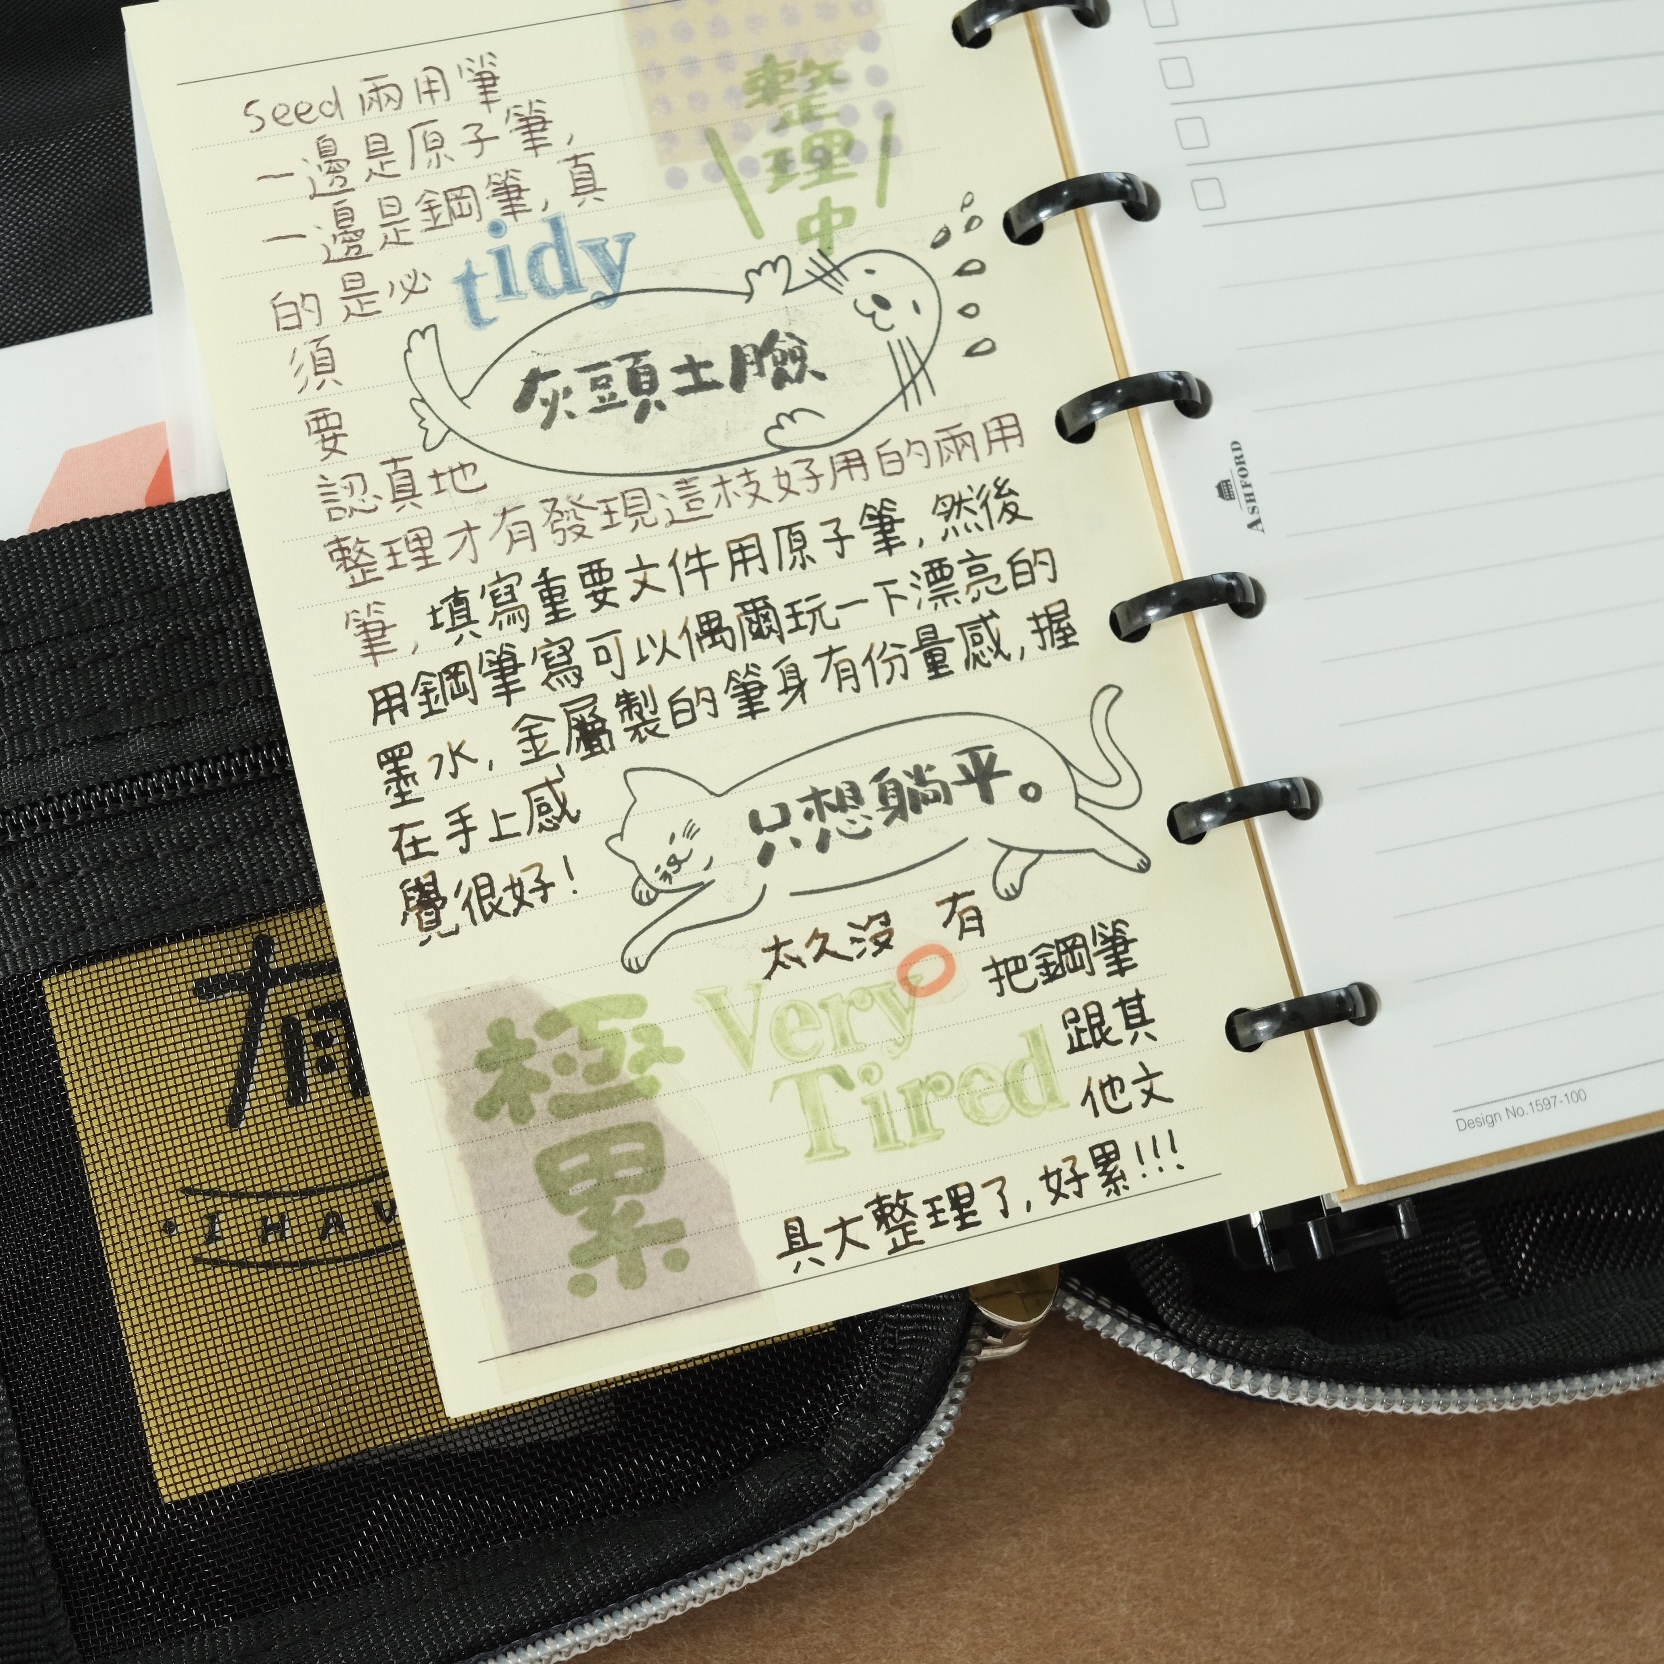 seed 兩用筆
整理中
一邊是原子筆,
一邊是鋼筆,真
tidy
的是必
須
灰頭土臉
要
認真地
整理才有發現這枝好用的兩用
筆,填寫重要文件用原子筆,然後
用鋼筆寫可以偶爾玩一下漂亮的
墨水,金屬製的筆身有份量感,握
在手上感
只想躺平。
覺很好!
太久沒有
把鋼筆
極累
Very
Tired
跟其
他文
具大整理了,好累!!!
ASHFORD
Design No.1597-100
有
I HAV